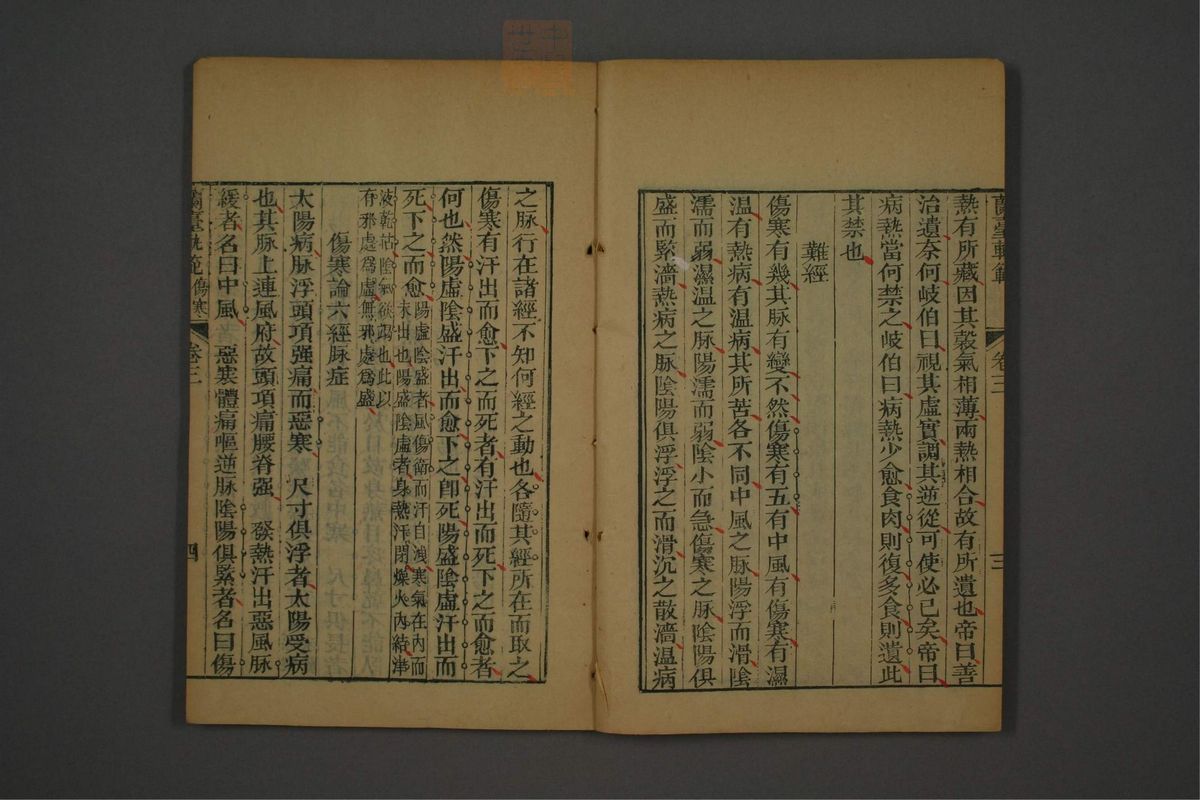 蘭臺軌範
卷三
三
熱有所藏因其穀氣相薄兩熱相合故有所遺也帝曰善
治遺奈何岐伯曰視其虛實調其逆從可使必已矣帝曰
病熱當何禁之岐伯曰病熱少愈食肉則復多食則遺此
其禁也
難經
傷寒有幾其脉有變不然傷寒有五有中風有傷寒有濕
温有熱病有温病其所苦各不同中風之脉陽浮而滑陰
濡而弱濕温之脉陽濡而弱陰小而急傷寒之脉陰陽俱
盛而緊濇熱病之脉陰陽俱浮浮之而滑沉之散濇温病
之脉行在諸經不知何經之動也各隨其經所在而取之
傷寒有汗出而愈下之而死者有汗出而死下之而愈者
何也然陽虛陰盛汗出而愈下之卽死陽盛陰虛汗出而
死下之而愈
陽虛陰盛者風傷衛而汗自洩寒氣在內而
未出也陽盛陰虛者身熱汗閉燥火內結津
液乾枯陰氣從陽也此以
有邪處爲虛無邪處爲盛
傷寒論六經脉症
太陽病脉浮頭項强痛而惡寒 尺寸俱浮者太陽受病
也其脉上連風府故頭項痛腰脊强 發熱汗出惡風脉
緩者名曰中風 惡寒體痛嘔逆脉陰陽俱緊者名曰傷
蘭臺軌範傷寒
卷三
四